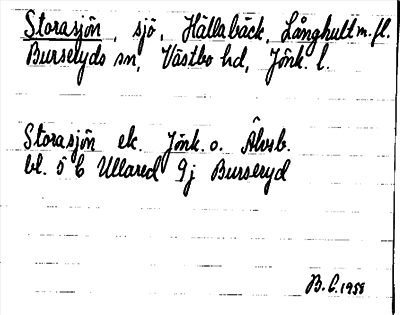 Storasjön, sjö, Hällabäck, Långhult m. fl.
Burseryds sn, Västbo hd, Jönk. l.
Storasjön ek. Jönk. o. Älvsb.
bl. 5 C Ullared 9j Burseryd
B. C. 1958